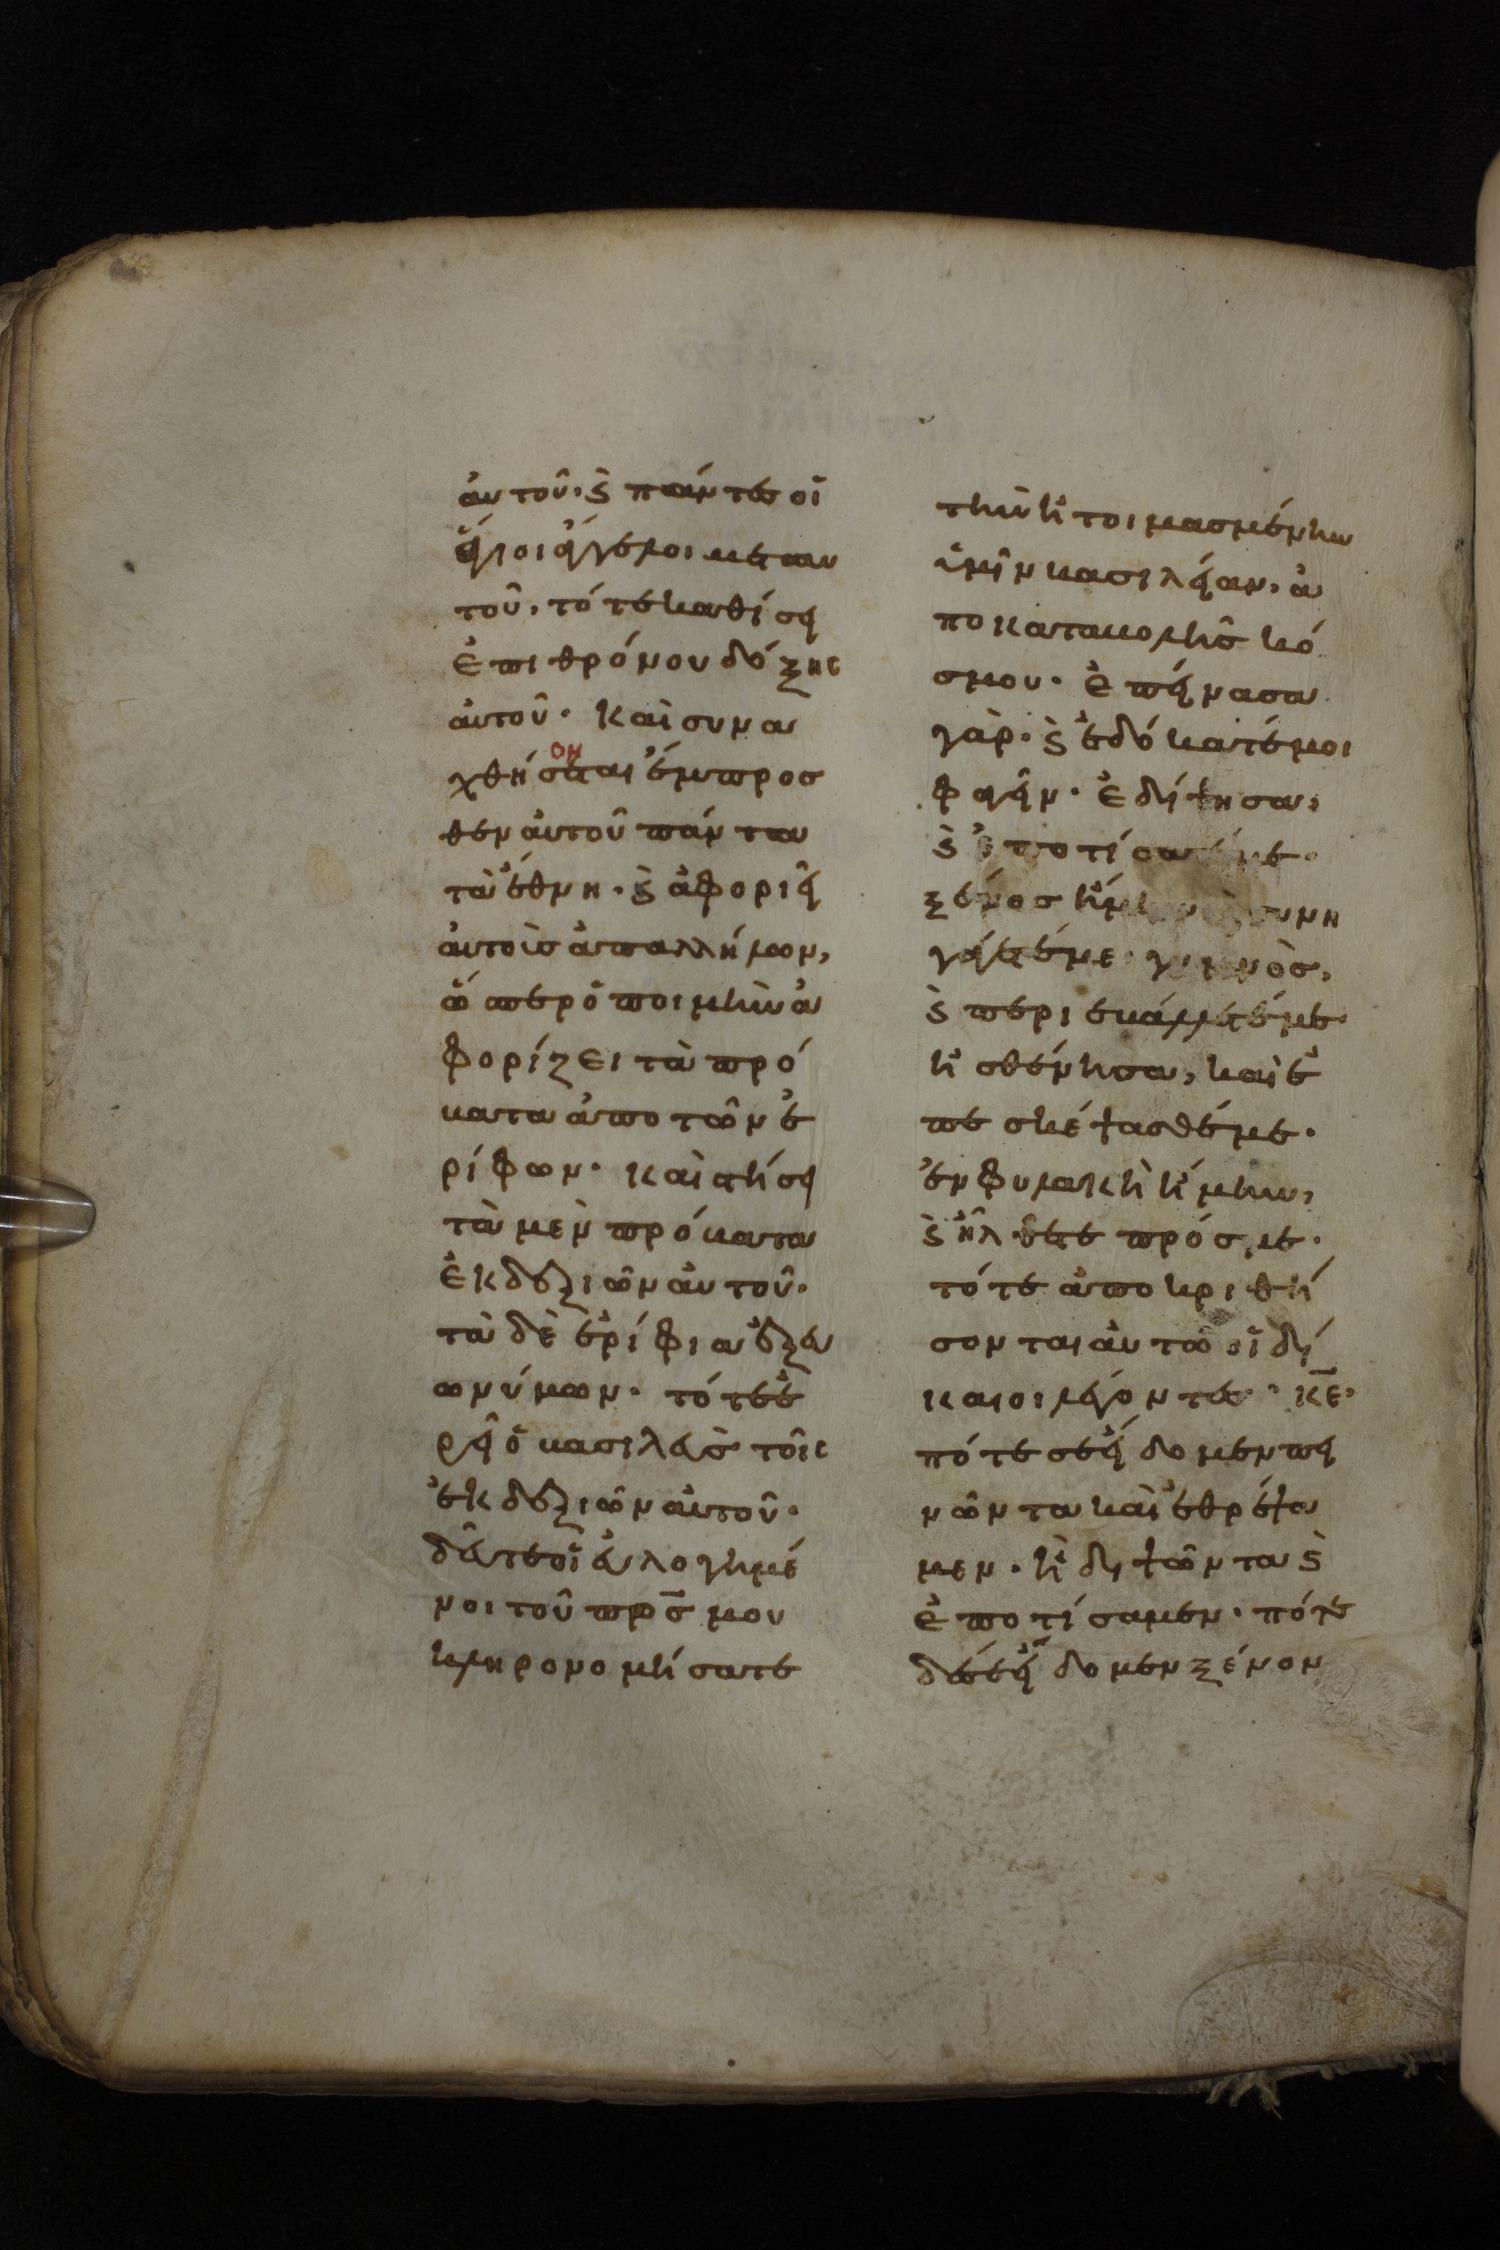 αυτοῦ· ϗ πάντες οἱ
ἅγιοι ἄγγελοι μεταυ
τοῦ, τότε καθίσει
ἐπι θρόνου δόξης
αυτοῦ· καὶ συνα
χθήσεται ἔμπροσ
ον
θεν αυτοῦ πάντα
τὰ ἔθνη· ϗ ἀφοριεῖ
αυτοὺσ ἀπαλλήλων,
ὥσπερ ὁ ποιμὴν ἀ
φορίζει τὰ πρό
βατα ἀπο τῶν ἐ
ρίφων· καὶ στήσει
τὰ μεν πρόβατα
ἐκ δεξιῶν αυτοῦ·
τὰ δὲ ἐρίφια ἐξ ευ
ωνύμων· τότε ἐ
ρεῖ ὁ βασιλεὺσ τοῖς
ἐκ δεξιῶν αυτοῦ·
δεῦτε οἱ ευλογημέ
νοι τοῦ πρσ μου
κληρονομήσατε
τὴν ἡτοιμασμένην
ὑμῖν βασιλείαν, ἀ
πο καταβολῆσ κό
σμου· ἐπείνασα
γὰρ· ϗ ἐδόκατέ μοι
φαγεῖν· ἐδίψησα,
ϗ ἐποτίσατέ με·
ξένοσ ἤμην ϗ συνη
γάγετέ με· γυμνὸσ,
ϗ περιεβάλλετέ με·
ἠσθένησα, καὶ ἐ
πεσκέψασθέ με·
ἐν φυλακὴ ἤμην,
ϗ ἤλθετε πρόσ με·
τότε ἀποκριθή
σονται αυτῶ οἱ δί
καιοι λέγοντες· κε·
πότε σε εἴδομεν πει
νῶντα καὶ ἐθρέψα
μεν· ἢ διψῶντα ϗ
ἐποτίσαμεν· πότε
δέ σε εἴδομεν ξένον